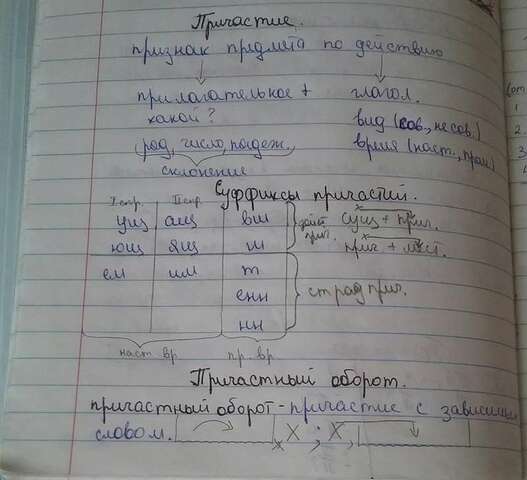 Причастие.
признак предмета по действию
прилагательное + глагол.
какой? вид (сов., несов.)
(род, число, падеж.) время (наст., прош.)
склонение
Суффиксы причастий.
I спр. II спр.
ущ ащ вш дейст. прич. сущ + прич.
ющ ящ ш прич + мест.
ем им т страд прич.
енн
нн
наст вр пр. вр
Причастный оборот.
причастный оборот - причастие с зависим
словом. X ; X,